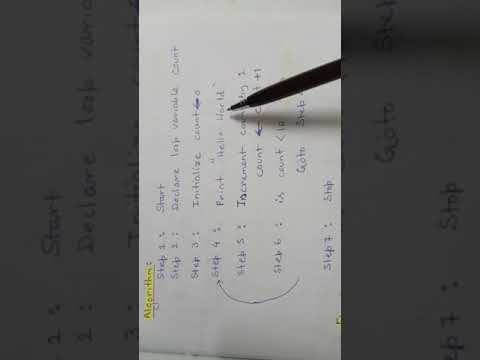 Algorithm:
Step 1 : Start
Step 2 : Declare loop variable count
Step 3 : Initialize count ← 0
Step 4 : Print "Hello World"
Step 5 : Increment by 1
count ← +1
Step 6 : is count < 10
Goto Step
Step 7 : Stop